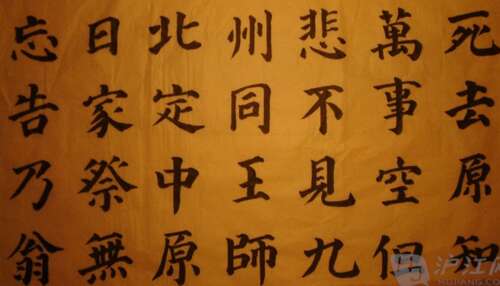 死去原知
萬事空但
悲不見九
州同王師
北定中原
日家祭無
忘告乃翁
沪江